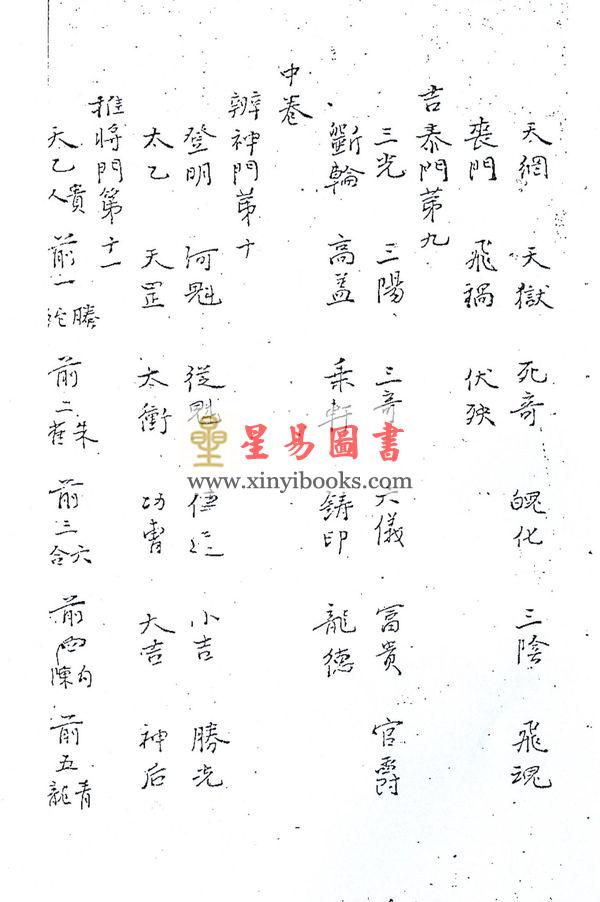 天網 天獄 死奇 魄化 三陰 飛魂
喪門 飛禍 伏殃
吉泰門第九
三光 三陽 三奇 六儀 富貴 官爵
斵輪 高蓋 乗軒 鋳印 龍德
中巻
辨神門第十
登明 河魁 從魁 傳送 小吉 勝光
太乙 天罡 太衝 功曹 大吉 神后
推將門第十一
天乙貴人 前一騰蛇 前二朱雀 前三六合 前四勾陳 前五青龍
星易圖書
www.xinyibooks.com